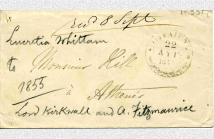 Rec'd 8 Sept
Lucretia Whittam
to Monsieur Hill
22
1855
à Athènes
Lord Kirkwall and A. Fitzmaurice